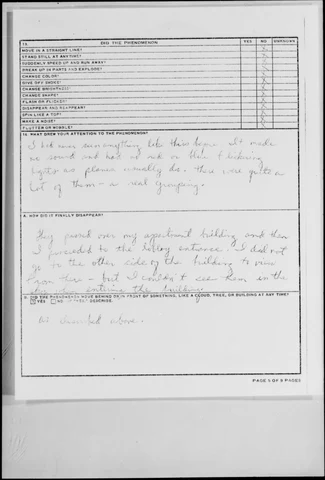 15. DID THE PHENOMENON YES NO UNKNOWN
MOVE IN A STRAIGHT LINE?
STAND STILL AT ANYTIME?
SUDDENLY SPEED UP AND RUN AWAY?
BREAK UP IN PARTS AND EXPLODE?
CHANGE COLOR?
GIVE OFF SMOKE?
CHANGE BRIGHTNESS?
CHANGE SHAPE?
FLASH OR FLICKER?
DISAPPEAR AND REAPPEAR?
SPIN LIKE A TOP?
MAKE A NOISE?
FLUTTER OR WOBBLE?
16. WHAT DREW YOUR ATTENTION TO THE PHENOMENON?
I had never seen anything like them before. It made
no sound and had no red or blinking
lights as planes usually do. There were quite a
lot of them - a real grouping.
A. HOW DID IT FINALLY DISAPPEAR?
They passed over my apartment building and then
I proceeded to the lobby entrance. I did not
go to the other side of the building to view
from there - but I couldn't see them in the
sky when entering the building.
B. DID THE PHENOMENON MOVE BEHIND OR IN FRONT OF SOMETHING, LIKE A CLOUD, TREE, OR BUILDING AT ANY TIME?
YES NO IF "YES" DESCRIBE.
As described above.
PAGE 5 OF 8 PAGES